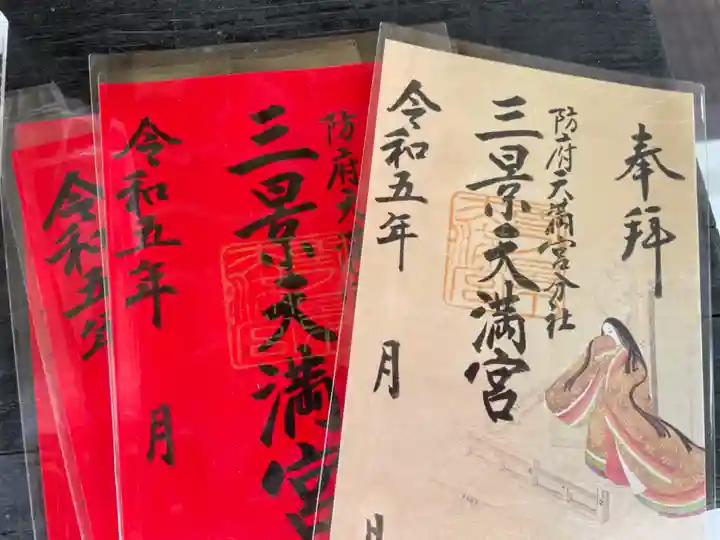 奉拝
防府天満宮分社
三景天満宮
令和五年 月
防府天満
三景天満宮
令和五年 月
令和五年